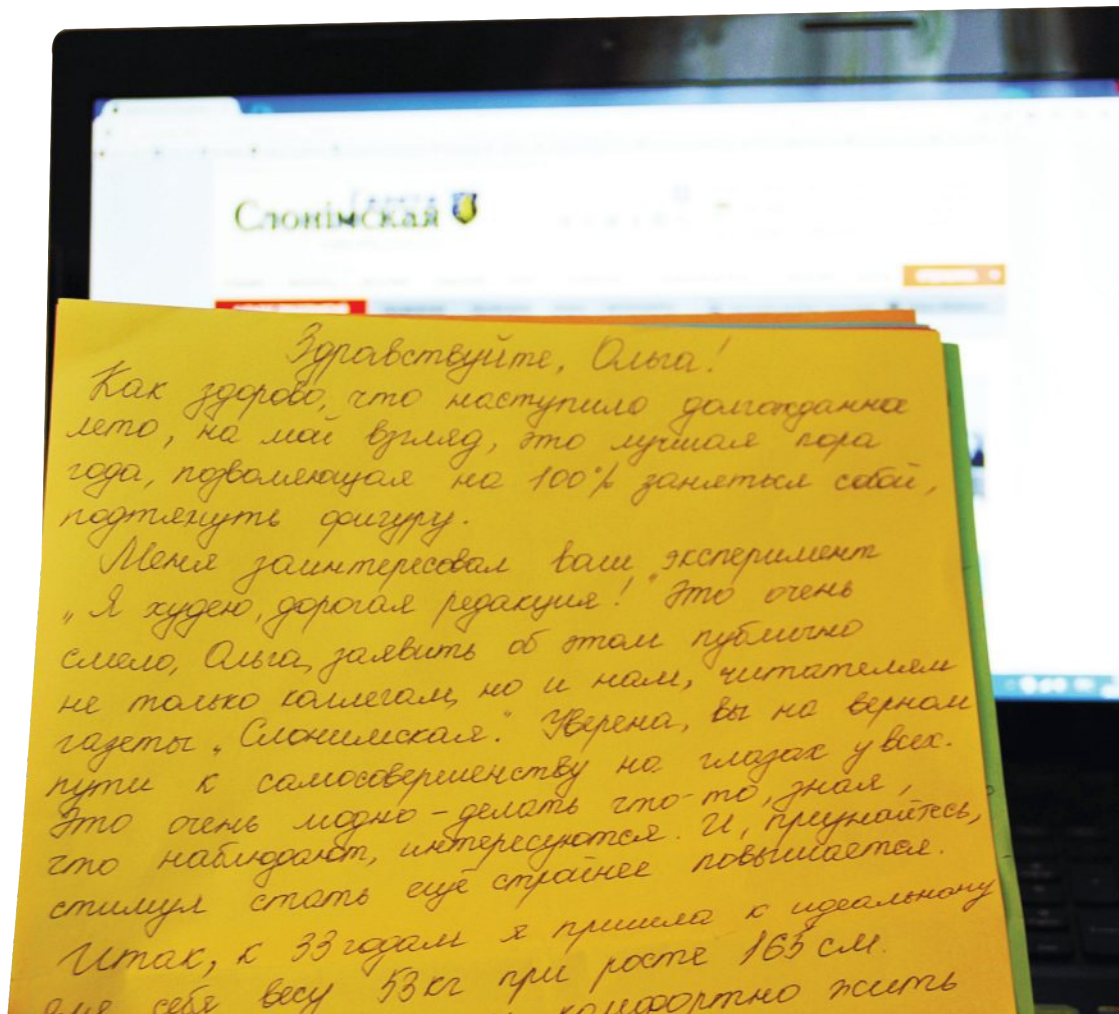 Газета
Слонімская
Здравствуйте, Ольга!
Как здорово, что наступило долгожданное
лето, на мой взгляд, это лучшая пора
года, позволяющая на 100% заняться собой,
подтянуть фигуру.
Меня заинтересовал ваш эксперимент
„Я худею, дорогая редакция!" Это очень
смело, Ольга, заявить об этом публично
не только коллегам, но и нам, читателям
газеты „Слонимская". Уверена, вы на верном
пути к самосовершенству на глазах у всех.
Это очень модно - делать что-то, зная,
что наблюдают, интересуются. И, признайтесь,
стимул стать ещё стройнее повышается.
Итак, к 33 годам я пришла к идеальному
для себя весу 53 кг при росте 165 см.
комфортно жить